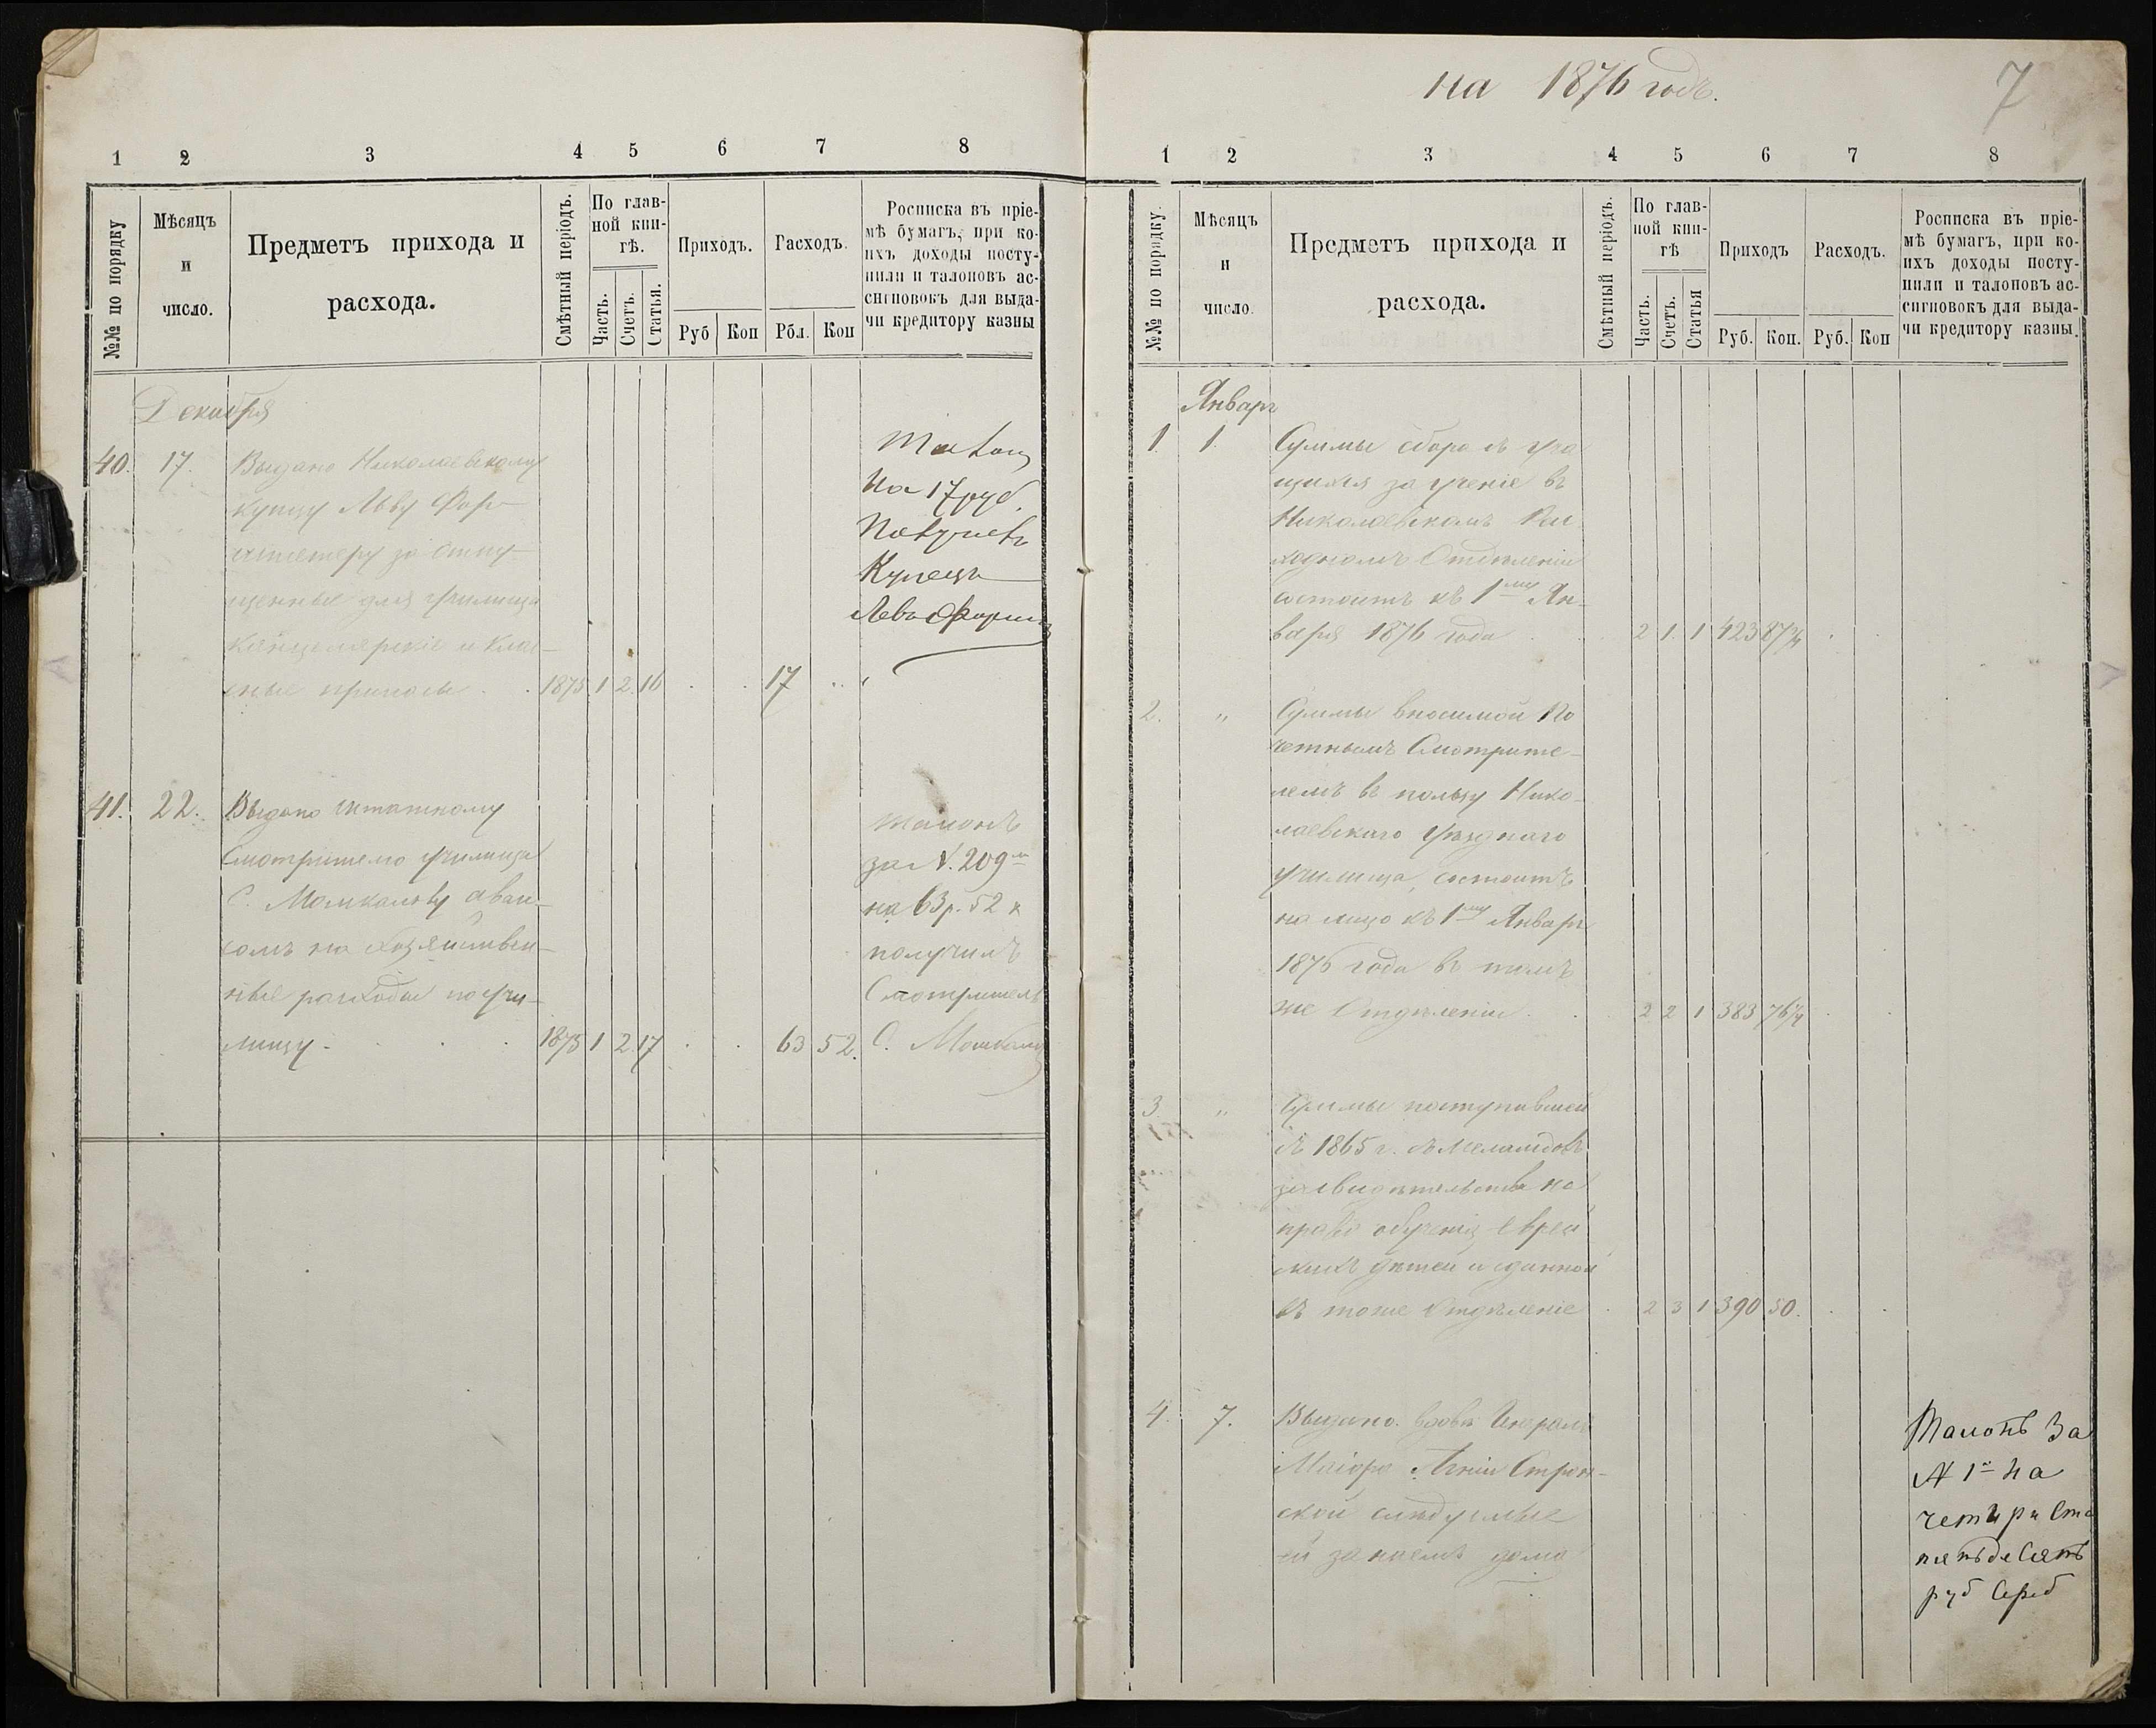 1 2 3 4 5 6 7 8
№№ по порядку
Мѣсяцъ
и
число.
Предметъ прихода и
расхода.
Смѣтный періодъ.
По глав-
ной кни-
гѣ.
Часть.
Счетъ.
Статья.
Приходъ.
Расходъ.
Руб Коп Рбл. Коп
Росписка въ пріе-
мѣ бумагъ, при ко-
ихъ доходы посту-
пили и талоновъ ас-
сигновокъ для выда-
чи кредитору казны
Декабря
40. 17. Выдано Николаевскому
купцу Льву
за отпу-
щенные для училища
канцелярскіе и клас-
сные припасы 1875 1 2 16 17
на 17 руб.
Купецъ
Левъ
41. 22. Выдано штатному
Смотрителю училища
С. аван-
сомъ на хозяйствен-
ные расходы по учи-
лищу 1875 1 2 17 63 52.
талонъ
за N. 209м
на 63 р. 52 к
получилъ
Смотритель
С.
на 1876 годъ.
7
1 2 3 4 5 6 7 8
№№ по порядку.
Мѣсяцъ
и
число.
Предметъ прихода и
расхода.
Смѣтный періодъ.
По глав-
ной кни-
гѣ
Часть.
Счетъ.
Статья
Приходъ
Расходъ.
Руб. Коп. Руб. Коп
Росписка въ пріе-
мѣ бумагъ, при ко-
ихъ доходы посту-
пили и талоновъ ас-
сигновокъ для выда-
чи кредитору казны.
Январь
1. 1. Суммы сбора съ уча
щихся за ученіе въ
Николаевскомъ
Отдѣленіи
состоитъ къ 1му Ян-
варя 1876 года 2 1. 1 423 87¾
2. „ Суммы вносимой По
четнымъ Смотрите-
лемъ въ пользу Нико-
лаевскаго Уѣзднаго
училища, состоитъ
на лицо къ 1му Январ
1876 года въ томъ
же Отдѣленіи 2 2 1 383 76¾
3. „ Суммы поступившей
въ 1865 г. съ Меламдовъ
за свидѣтельства на
право обученія еврей
скихъ дѣтей и сданной
въ тоже Отдѣленіе 2 3 1 390 50.
4. 7. Выдано вдовѣ Генералъ
Маіора
слѣдуемые
ей за наемъ дома
Талонъ За
N 1й На
четыри Ста
пятьдесятъ
руб Сереб